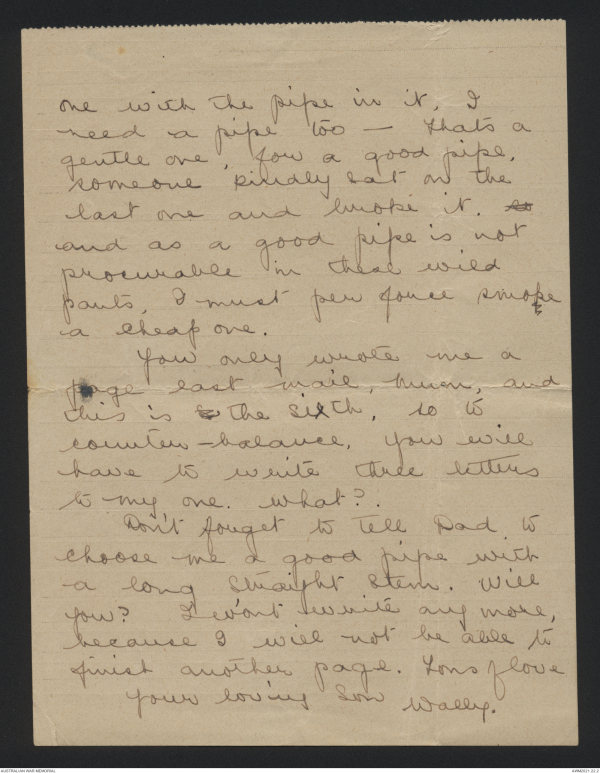 one with the pipe in it, I
need a pipe too — thats a
gentle one, for a good pipe,
someone kindly sat on the
last one and broke it. so
and as a good pipe is not
procurable in these wild
parts, I must per force smoke
a cheap one.
You only wrote me a
page last mail, Mum, and
this is the sixth, so to
counter-balance, you will
have to write three letters
to my one. what?.
Don't forget to tell Dad to
choose me a good pipe with
a long straight stem. Will
you? I won't write any more,
because I will not be able to
finish another page. Tons of love
Your loving Son Wally.
AUSTRALIAN WAR MEMORIAL